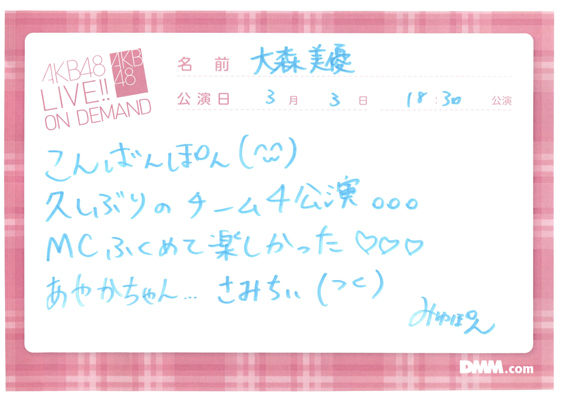 AKB48
LIVE!!
ON DEMAND
AKB
48
名前 大森美優
公演日 3月 3日 18:30 公演
こんばんぽん(^ω^)
久しぶりのチーム4公演。。。
MCふくめて楽しかった♡♡♡
あやかちゃん... さみちぃ(つく)
みゆぽん
DMM.com